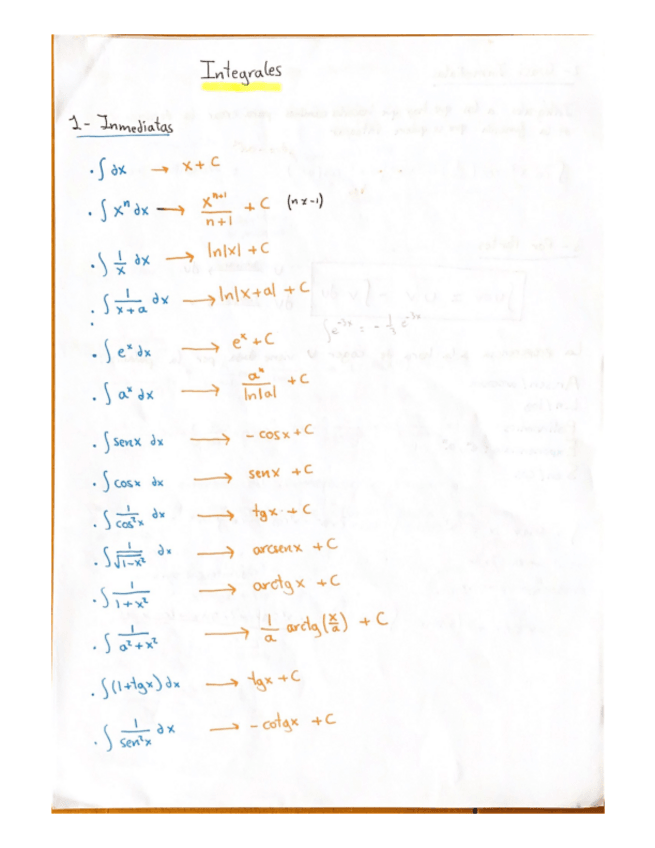 Integrales
1- Inmediatas
· ∫ dx → x + C
· ∫ xⁿ dx → xⁿ⁺¹/(n+1) + C (n≠-1)
· ∫ 1/x dx → ln|x| + C
· ∫ 1/(x+a) dx → ln|x+a| + C
∫e⁻³ˣ = - 1/3 e⁻³ˣ
· ∫ eˣ dx → eˣ + C
· ∫ aˣ dx → aˣ/ln|a| + C
· ∫ senx dx → - cosx + C
· ∫ cosx dx → senx + C
· ∫ 1/cos²x dx → tgx + C
· ∫ 1/√(1-x²) dx → arcsenx + C
· ∫ 1/(1+x²) → arctgx + C
· ∫ 1/(a²+x²) → 1/a arctg(x/a) + C
· ∫(1+tgx) dx → tgx + C
· ∫ 1/sen²x dx → - cotgx + C